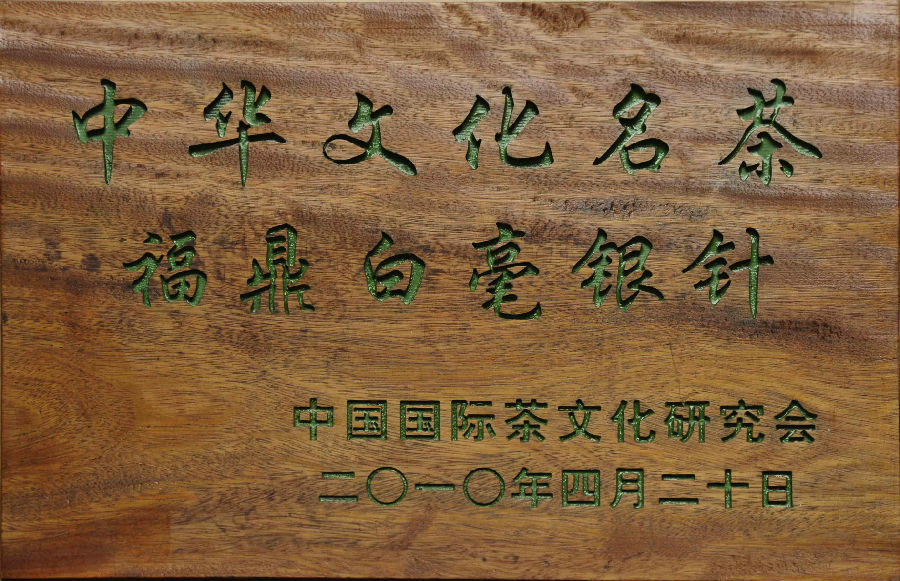 中华文化名茶
福鼎白毫银针
中国国际茶文化研究会
二〇一〇年四月二十日